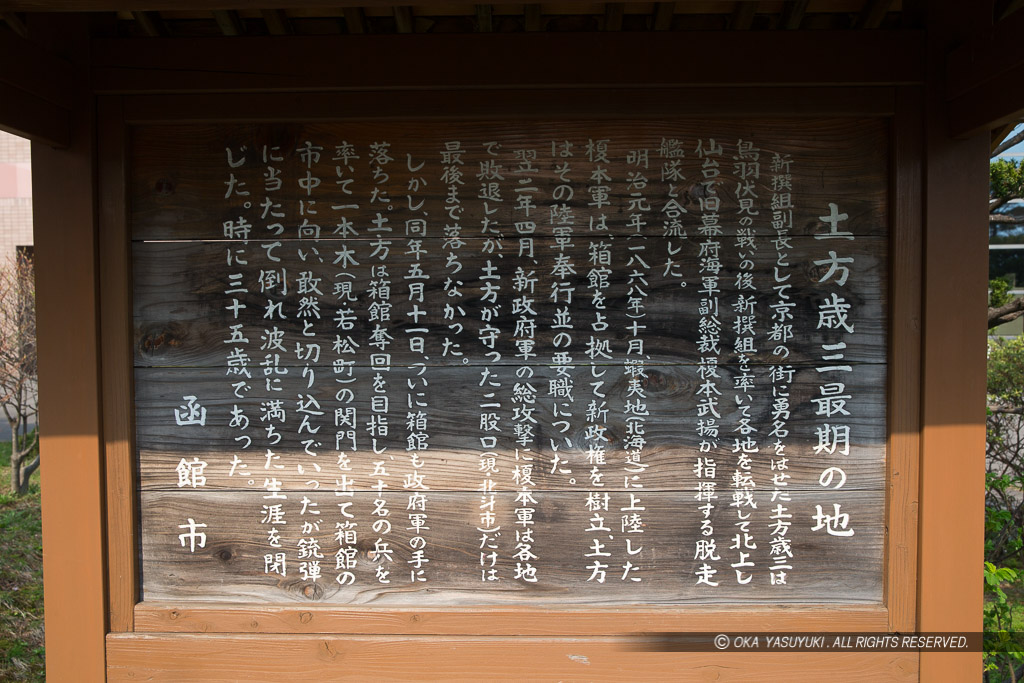 土方歳三最期の地
新撰組副長として京都の街に勇名をはせた土方歳三は
鳥羽伏見の戦いの後、新撰組を率いて各地を転戦して北上し
仙台で旧幕府海軍副総裁榎本武揚が指揮する脱走
艦隊と合流した。
明治元年(一八六八年)十月、蝦夷地(北海道)に上陸した
榎本軍は、箱館を占拠して新政権を樹立、土方
はその陸軍奉行並の要職についた。
翌二年四月、新政府軍の総攻撃に榎本軍は各地
で敗退したが、土方が守った二股口(現・北斗市)だけは
最後まで落ちなかった。
しかし、同年五月十一日、ついに箱館も政府軍の手に
落ちた。土方は箱館奪回を目指し、五十名の兵を
率いて一本木(現・若松町)の関門を出て箱館の
市中に向い、敢然と切り込んでいったが銃弾
に当たって倒れ波乱に満ちた生涯を閉
じた。時に三十五歳であった。
函館市
© OKA YASUYUKI. ALL RIGHTS RESERVED.